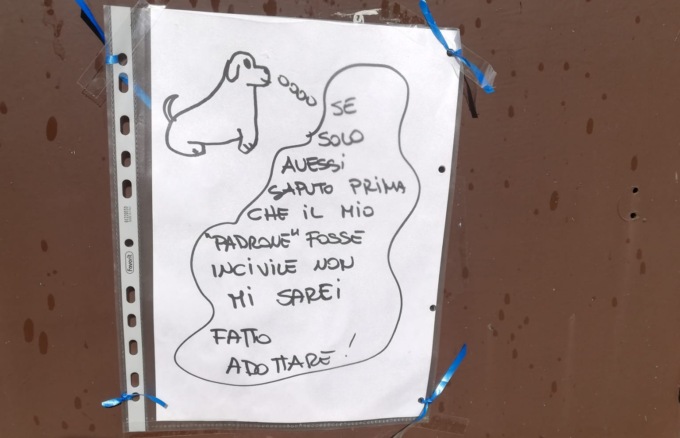 SE
SOLO
AVESSI
SAPUTO PRIMA
CHE IL MIO
"PADRONE" FOSSE
INCIVILE NON
MI SAREI
FATTO
ADOTTARE!